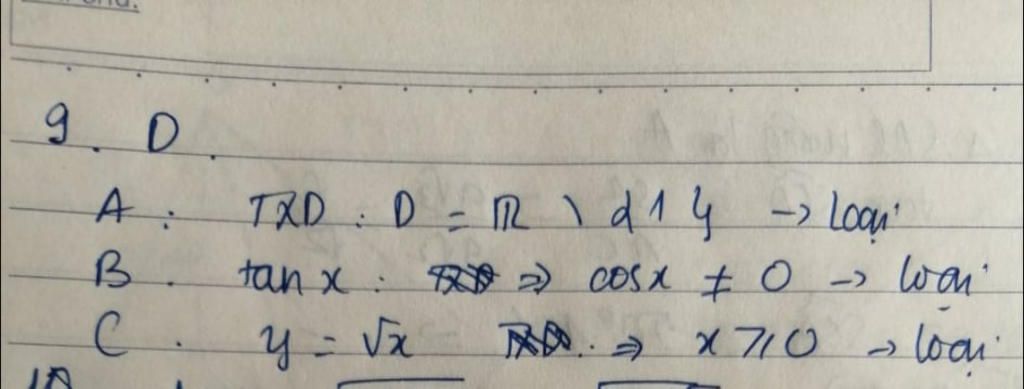 9. D.
A: TXD: D = ℝ \ {1} → Loại
B. tan x: ⇒ cosx ≠ 0 → loại
C. y = √x ⇒ x ⩾ 0 → loại